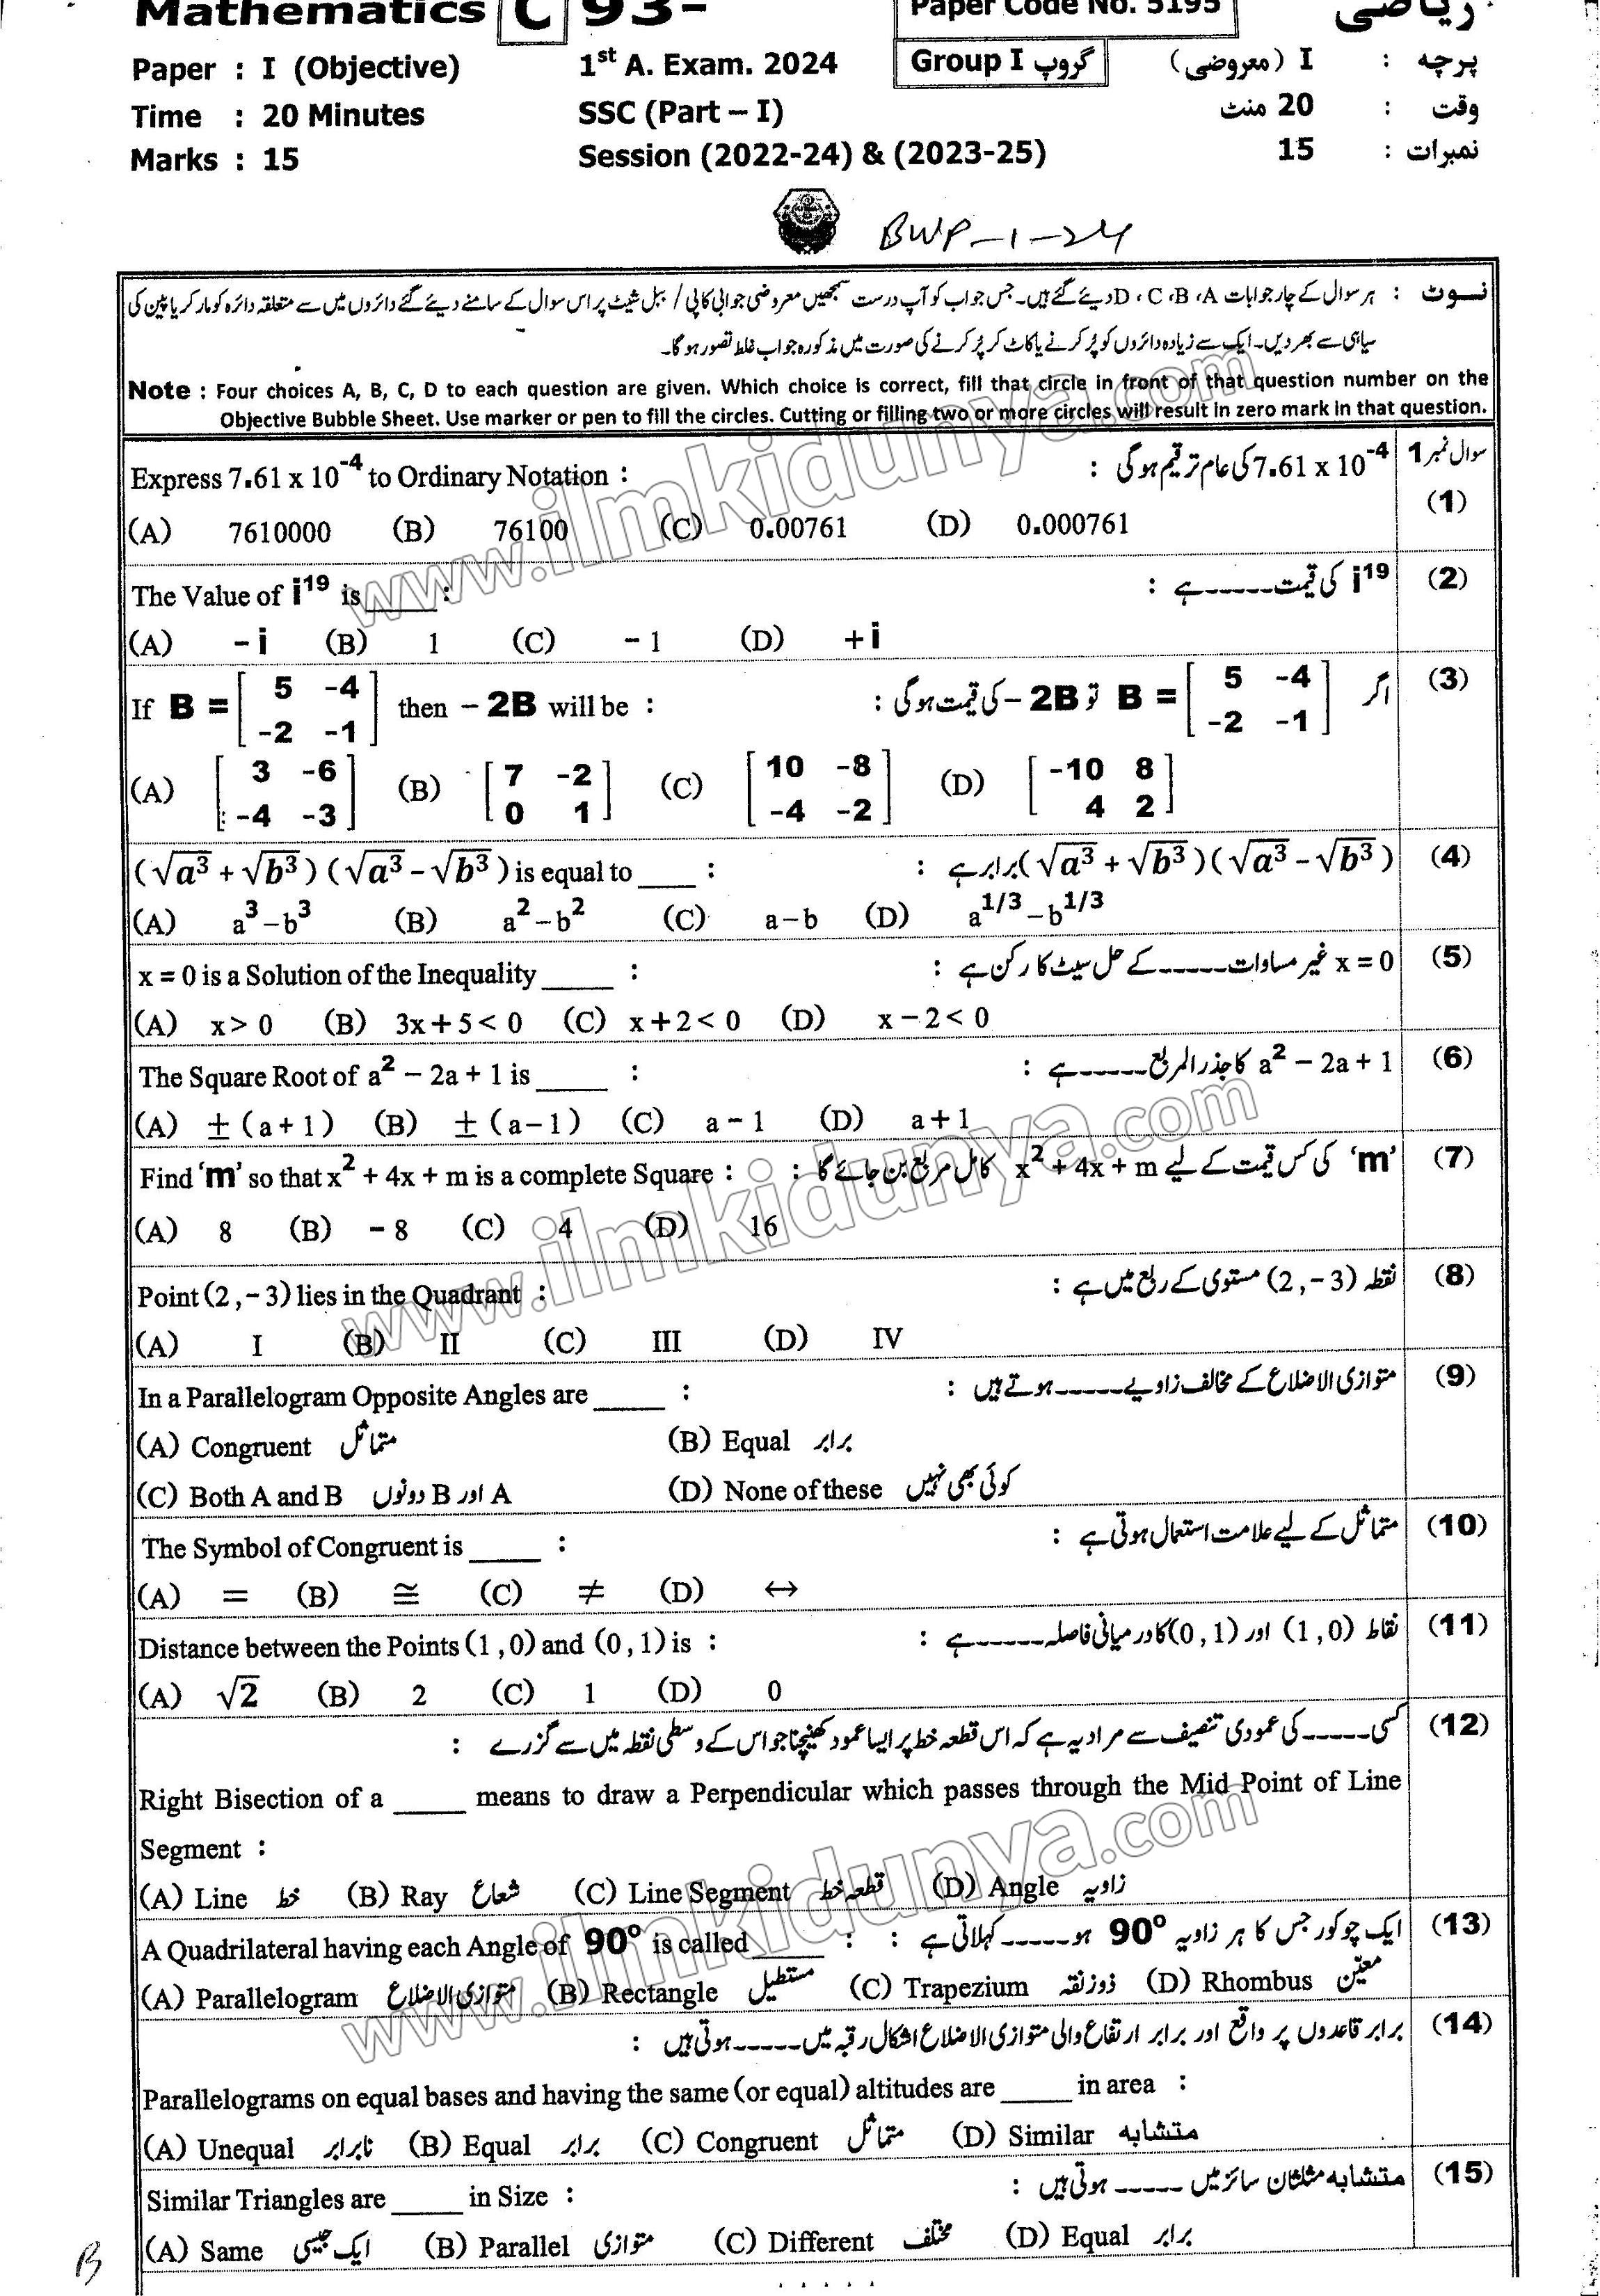 Mathematics C 93- Paper Code No. 5195 ریاضی
Paper : I (Objective) 1st A. Exam. 2024 Group I گروپ پرچہ : I (معروضی)
Time : 20 Minutes SSC (Part – I) وقت : 20 منٹ
Marks : 15 Session (2022-24) & (2023-25) نمبرات : 15
BWP-1-24
نوٹ : ہر سوال کے چار جوابات A، B، C، D دیئے گئے ہیں۔ جس جواب کو آپ درست سمجھیں معروضی جوابی کاپی / ببل شیٹ پر اس سوال کے سامنے دیئے گئے دائروں میں سے متعلقہ دائرہ کو مارکر یا پین کی
سیاہی سے بھر دیں۔ ایک سے زیادہ دائروں کو پُر کرنے یا کاٹ کر پُر کرنے کی صورت میں مذکورہ جواب غلط تصور ہو گا۔
Note : Four choices A, B, C, D to each question are given. Which choice is correct, fill that circle in front of that question number on the
Objective Bubble Sheet. Use marker or pen to fill the circles. Cutting or filling two or more circles will result in zero mark in that question.
سوال نمبر 1
Express 7.61 x 10⁻⁴ to Ordinary Notation : 7.61 x 10⁻⁴ کی عام ترقیم ہو گی : (1)
(A) 7610000 (B) 76100 (C) 0.00761 (D) 0.000761
The Value of i¹⁹ is _____ : i¹⁹ کی قیمت ----- ہے : (2)
(A) – i (B) 1 (C) – 1 (D) + i
If B = [5 -4; -2 -1] then – 2B will be : اگر B = [5 -4; -2 -1] تو – 2B کی قیمت ہو گی : (3)
(A) [3 -6; -4 -3] (B) [7 -2; 0 1] (C) [10 -8; -4 -2] (D) [-10 8; 4 2]
(√a³ + √b³)(√a³ – √b³) is equal to ____ : (√a³ + √b³)(√a³ – √b³) برابر ہے : (4)
(A) a³ – b³ (B) a² – b² (C) a – b (D) a^1/3 – b^1/3
x = 0 is a Solution of the Inequality _____ : x = 0 غیر مساوات ----- کے حل سیٹ کا رکن ہے : (5)
(A) x > 0 (B) 3x + 5 < 0 (C) x + 2 < 0 (D) x – 2 < 0
The Square Root of a² – 2a + 1 is _____ : a² – 2a + 1 کا جذر المربع ----- ہے : (6)
(A) ± (a + 1) (B) ± (a – 1) (C) a – 1 (D) a + 1
Find ‘m’ so that x² + 4x + m is a complete Square : ‘m’ کی کس قیمت کے لیے x² + 4x + m کامل مربع بن جائے گا : (7)
(A) 8 (B) – 8 (C) 4 (D) 16
Point (2 , – 3) lies in the Quadrant : نقطہ (2 , – 3) مستوی کے ربع میں ہے : (8)
(A) I (B) II (C) III (D) IV
In a Parallelogram Opposite Angles are _____ : متوازی الاضلاع کے مخالف زاویے ----- ہوتے ہیں : (9)
(A) Congruent متماثل (B) Equal برابر
(C) Both A and B A اور B دونوں (D) None of these کوئی بھی نہیں
The Symbol of Congruent is _____ : متماثل کے لیے علامت استعمال ہوتی ہے : (10)
(A) = (B) ≅ (C) ≠ (D) ↔
Distance between the Points (1 , 0) and (0 , 1) is : نقاط (1 , 0) اور (0 , 1) کا درمیانی فاصلہ ----- ہے : (11)
(A) √2 (B) 2 (C) 1 (D) 0
کسی ----- کی عمودی تنصیف سے مراد یہ ہے کہ اس قطعہ خط پر ایسا عمود کھینچنا جو اس کے وسطی نقطہ میں سے گزرے : (12)
Right Bisection of a _____ means to draw a Perpendicular which passes through the Mid Point of Line
Segment :
(A) Line خط (B) Ray شعاع (C) Line Segment قطعہ خط (D) Angle زاویہ
A Quadrilateral having each Angle of 90° is called _____ : ایک چوکور جس کا ہر زاویہ 90° ہو ----- کہلاتی ہے : (13)
(A) Parallelogram متوازی الاضلاع (B) Rectangle مستطیل (C) Trapezium ذوزنقہ (D) Rhombus معیّن
برابر قاعدوں پر واقع اور برابر ارتفاع والی متوازی الاضلاع اشکال رقبہ میں ----- ہوتی ہیں : (14)
Parallelograms on equal bases and having the same (or equal) altitudes are _____ in area :
(A) Unequal نابرابر (B) Equal برابر (C) Congruent متماثل (D) Similar متشابہ
Similar Triangles are _____ in Size : متشابہ مثلثان سائز میں ----- ہوتی ہیں : (15)
(A) Same ایک جیسی (B) Parallel متوازی (C) Different مختلف (D) Equal برابر
B
www.ilmkidunya.com
www.ilmkidunya.com
www.ilmkidunya.com